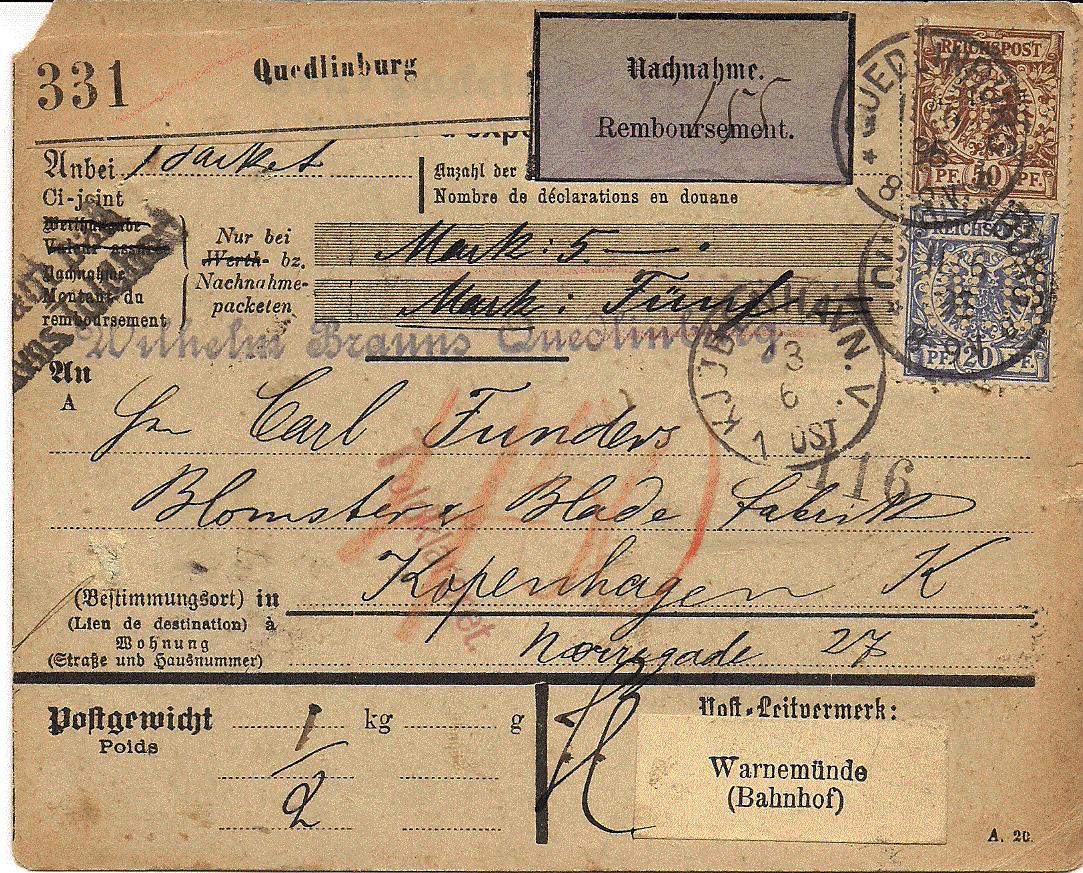 331
Quedlinburg
Nachnahme.
155
Remboursement.
REICHSPOST
PF. 50 PF.
Anbei 1 Packet
Ci-joint
Anzahl der
Nombre de déclarations en douane
Werthangabe
Valeur
Nachnahme
Montant du
remboursement
Nur bei
Werth- bz.
Nachnahme-
packeten
Mark: 5.—.
Mark: Fünf
REICHSPOST
PF. 20 PF.
Wilhelm Brauns Quedlinburg
KJØBENHAVN. V.
3
6
1 OST
116
An
A
Hrn Carl Funders
Blomster & Blade fabrik
Kopenhagen K
(Bestimmungsort) in
(Lieu de destination) à
Wohnung
(Straße und Hausnummer)
Nørregade 27
Postgewicht 1 kg g
Poids
2
Post-Leitvermerk:
Warnemünde
(Bahnhof)
A. 20.